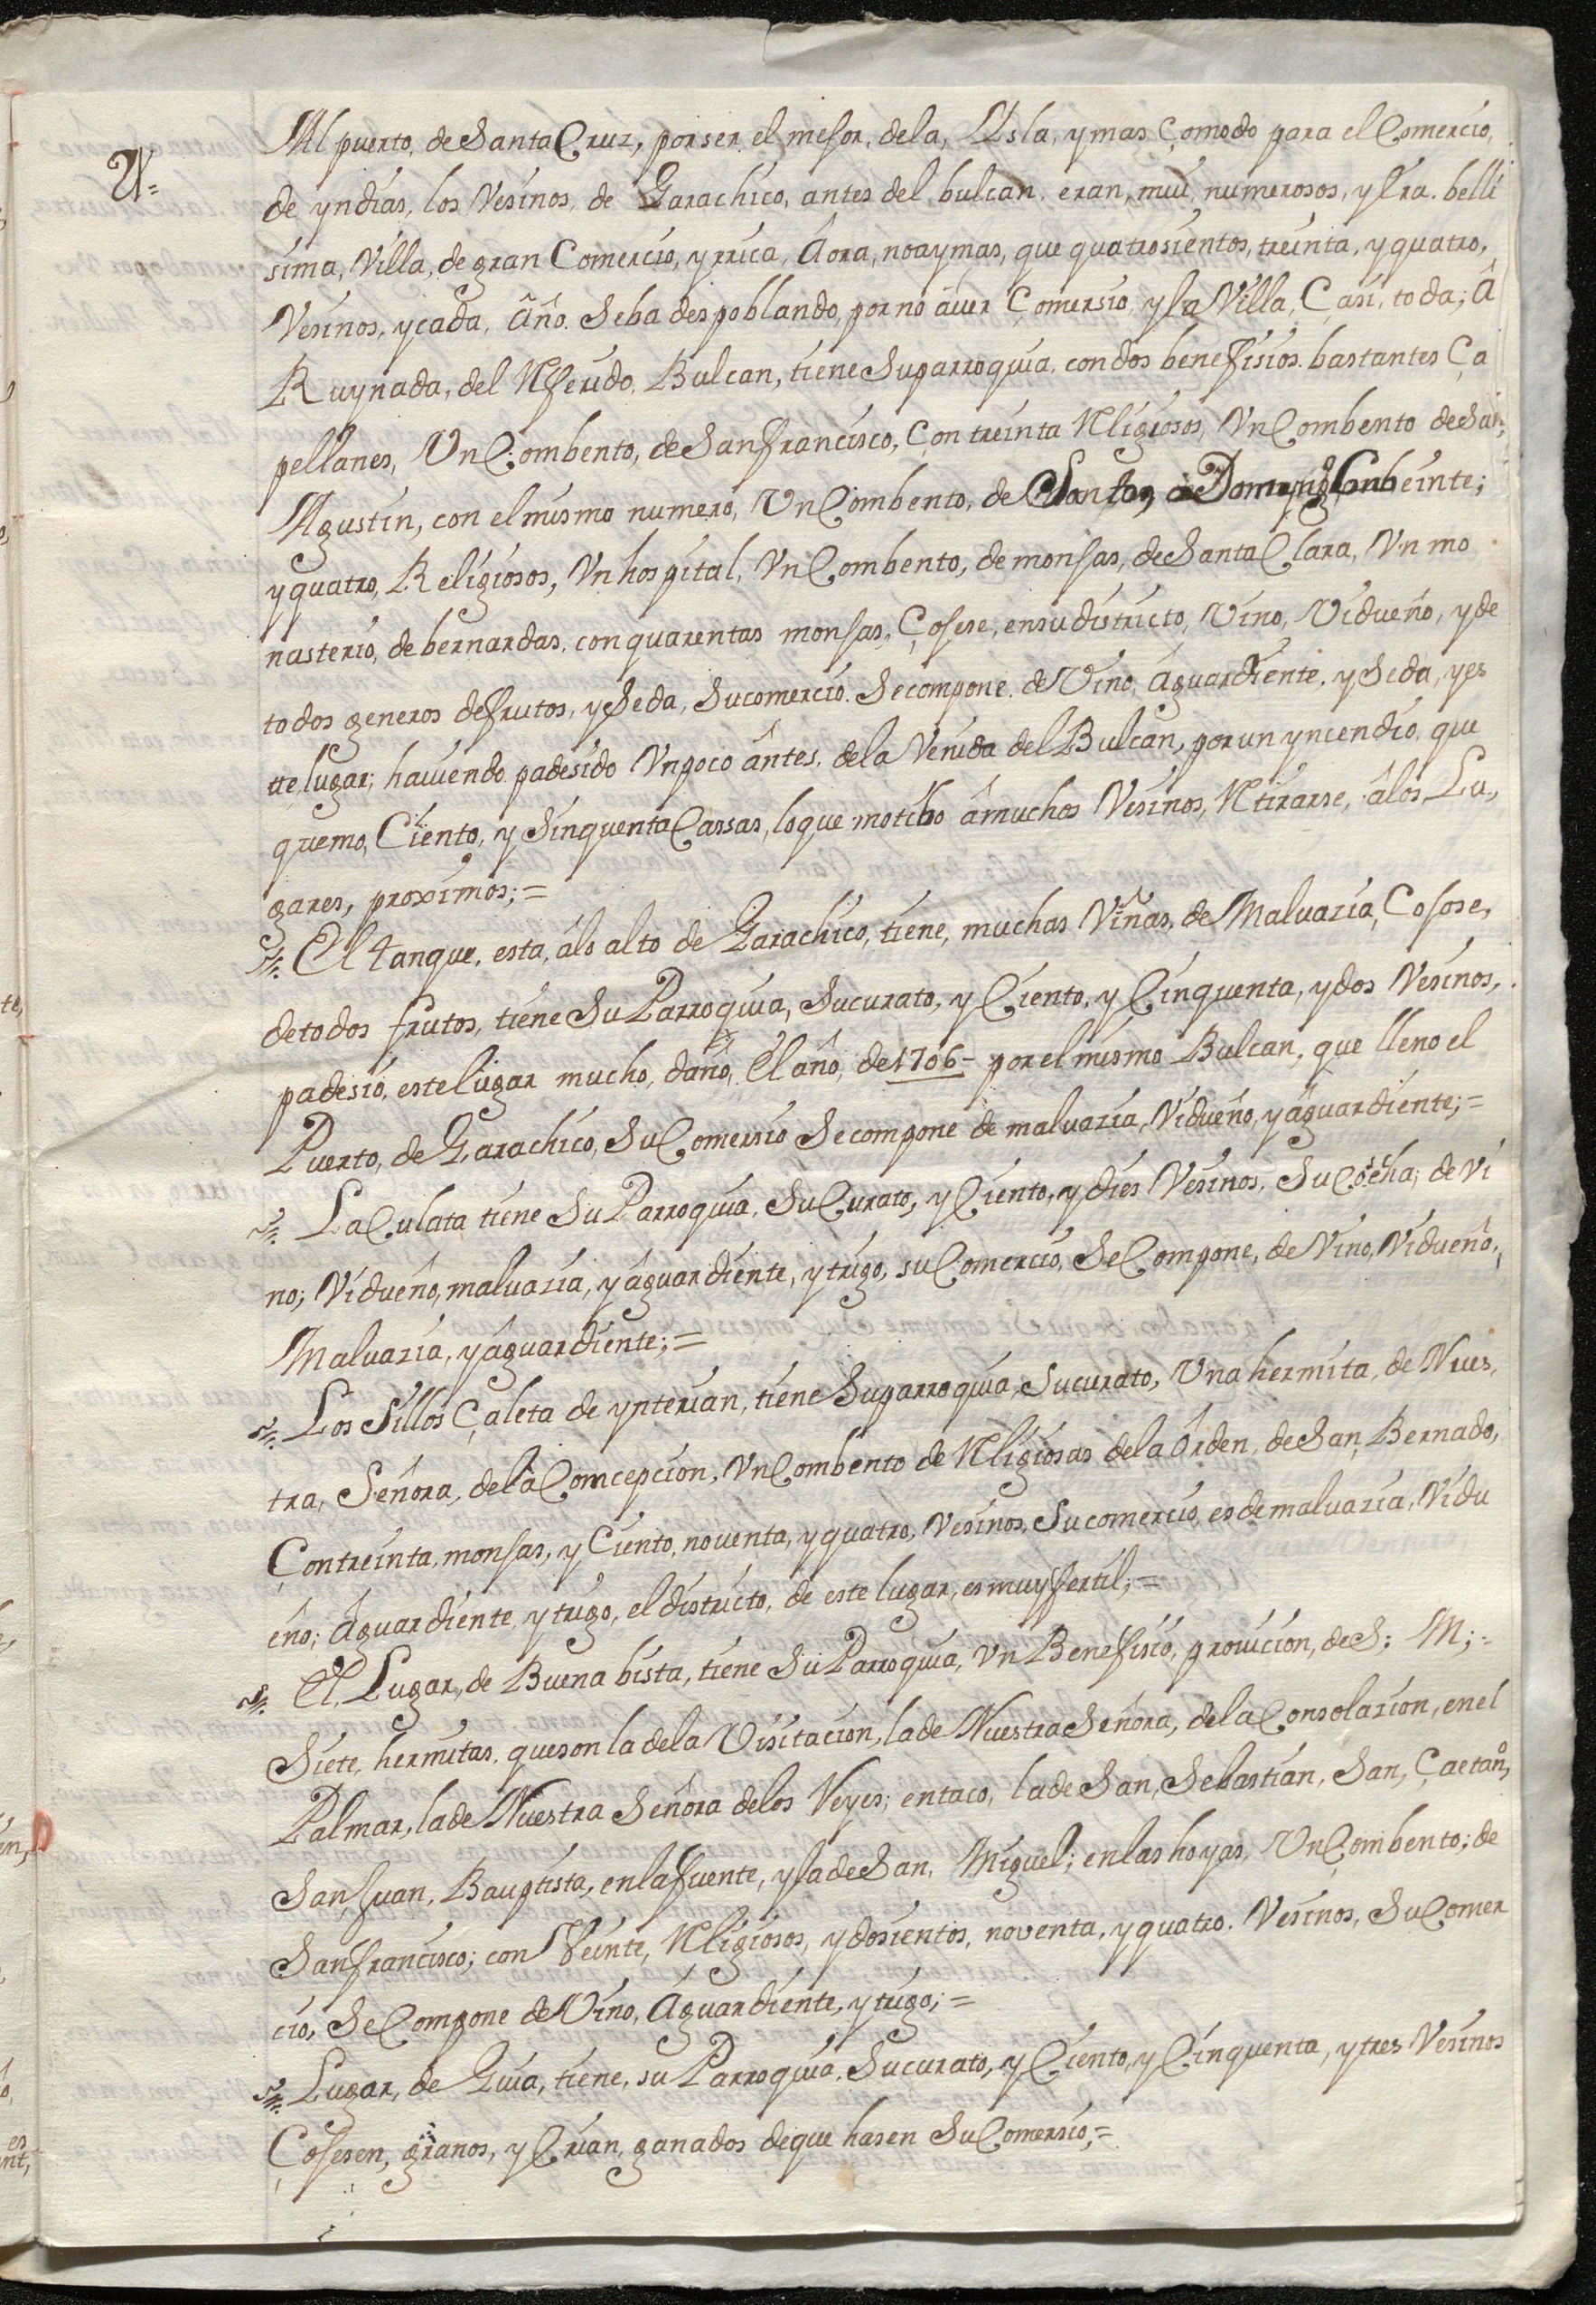 Al puerto, de Santa Cruz, por ser el mejor, de la, Ysla, y mas Çomodo para el Comercio,
de yndias, los Vesinos, de Garachico, antes del bulcan, eran, mui, numerosos, y Era. belli
sima, Villa, de gran Comercio, y rrica, Âora, no ay mas, que quatrosientos, treinta, y quatro,
Vesinos, y cada, Âño. Se ba despoblando, por no âuer Çomersio, y la Villa, Çasi, toda; Â
Ruynada, del Referido, Bulcan, tiene Su parroquia. con dos benefisios. bastantes Ça
pellanes, Vn Combento, de San francisco, Çon treinta Religiosos, Vn Combento de San,
Agustin, con el mismo numero, Vn Combento, de Santo, Domingo Con beinte;
y quatro, Religiosos, Vn hospital, Vn Combento, de monjas, de Santa Clara, Vn mo
nasterio, de bernardas, con quarentas monjas, Çojese, en su districto, Vino, Vidueño, y de
todos generos de frutos, y Seda, Su comercio. Se compone. de Vino, Âguardiente, y Seda, y es
te, lugar; hauiendo padesido Vn poco ântes, de la Venida del Bulcan, por un yncendio que
quemo, Ciento, y Sinquenta Cassas, lo que motibo â muchos Vesinos, Retirarse, â los, Lu,
gares, proximos; =
El tanque, esta, âlo alto de Garachico, tiene, muchas Viñas, de Malvazia, Cojose,
de todos frutos, tiene Su Parroquia, Su curato, y Ciento, y Cinquenta, y dos Vesinos,
padesio, este lugar mucho, daño, El año, de 1706 - por el mismo Bulcan, que lleno el
Puerto, de Garachico, Su Comersio Se compone de malvazia, Vidueño, y âguardiente; =
La Culata tiene Su Parroquia, Su Curato, y Ciento, y dies Vesinos, Su Cosecha; de Vi
no; Vidueño, malvazia, y âguardiente, y trigo, su Comercio, Se Compone, de Vino, Vidueño,
Malvazia, y âguardiente; =
Los Sillos Çaleta de ynterian, tiene Su parroquia, Su curato, Vna hermita, de Nues,
tra, Señora, de la Comcepcion, Vn Combento de Religiosas de la Ôrden, de San, Bernado,
Çon treinta, monjas, y Ciento, noventa, y quatro, Vesinos, Su comercio, es de malvazia, Vidu
eño; Âguardiente, y trigo, el districto, de este lugar, es muy fertil; =
El, Lugar, de Buena bista, tiene Su Parroquia, Vn Benefisio, prouicion, de S: M; =
Siete, hermitas, que son la de la Visitacion, la de Nuestra Señora, de la Consolazion, en el
Palmar, la de Nuestra Señora de los Reyes; en taco, la de San, Sebastian, San, Çaetano,
San, Juan, Bauptista, en la fuente, y la de San, Miguel; en las hoyas, Vn Çombento; de
San francisco; con Veinte, Religiosos, y dosientos, noventa, y quatro. Vesinos, Su Comer
cio, Se Compone de Vino, Âguardiente, y trigo; =
Lugar, de Guia, tiene, su Parroquia. Su curato, y Ciento, y Cinquenta, y tres Vesinos
Çojesen, granos, y Crian, ganados de que hasen Su Comersio; =